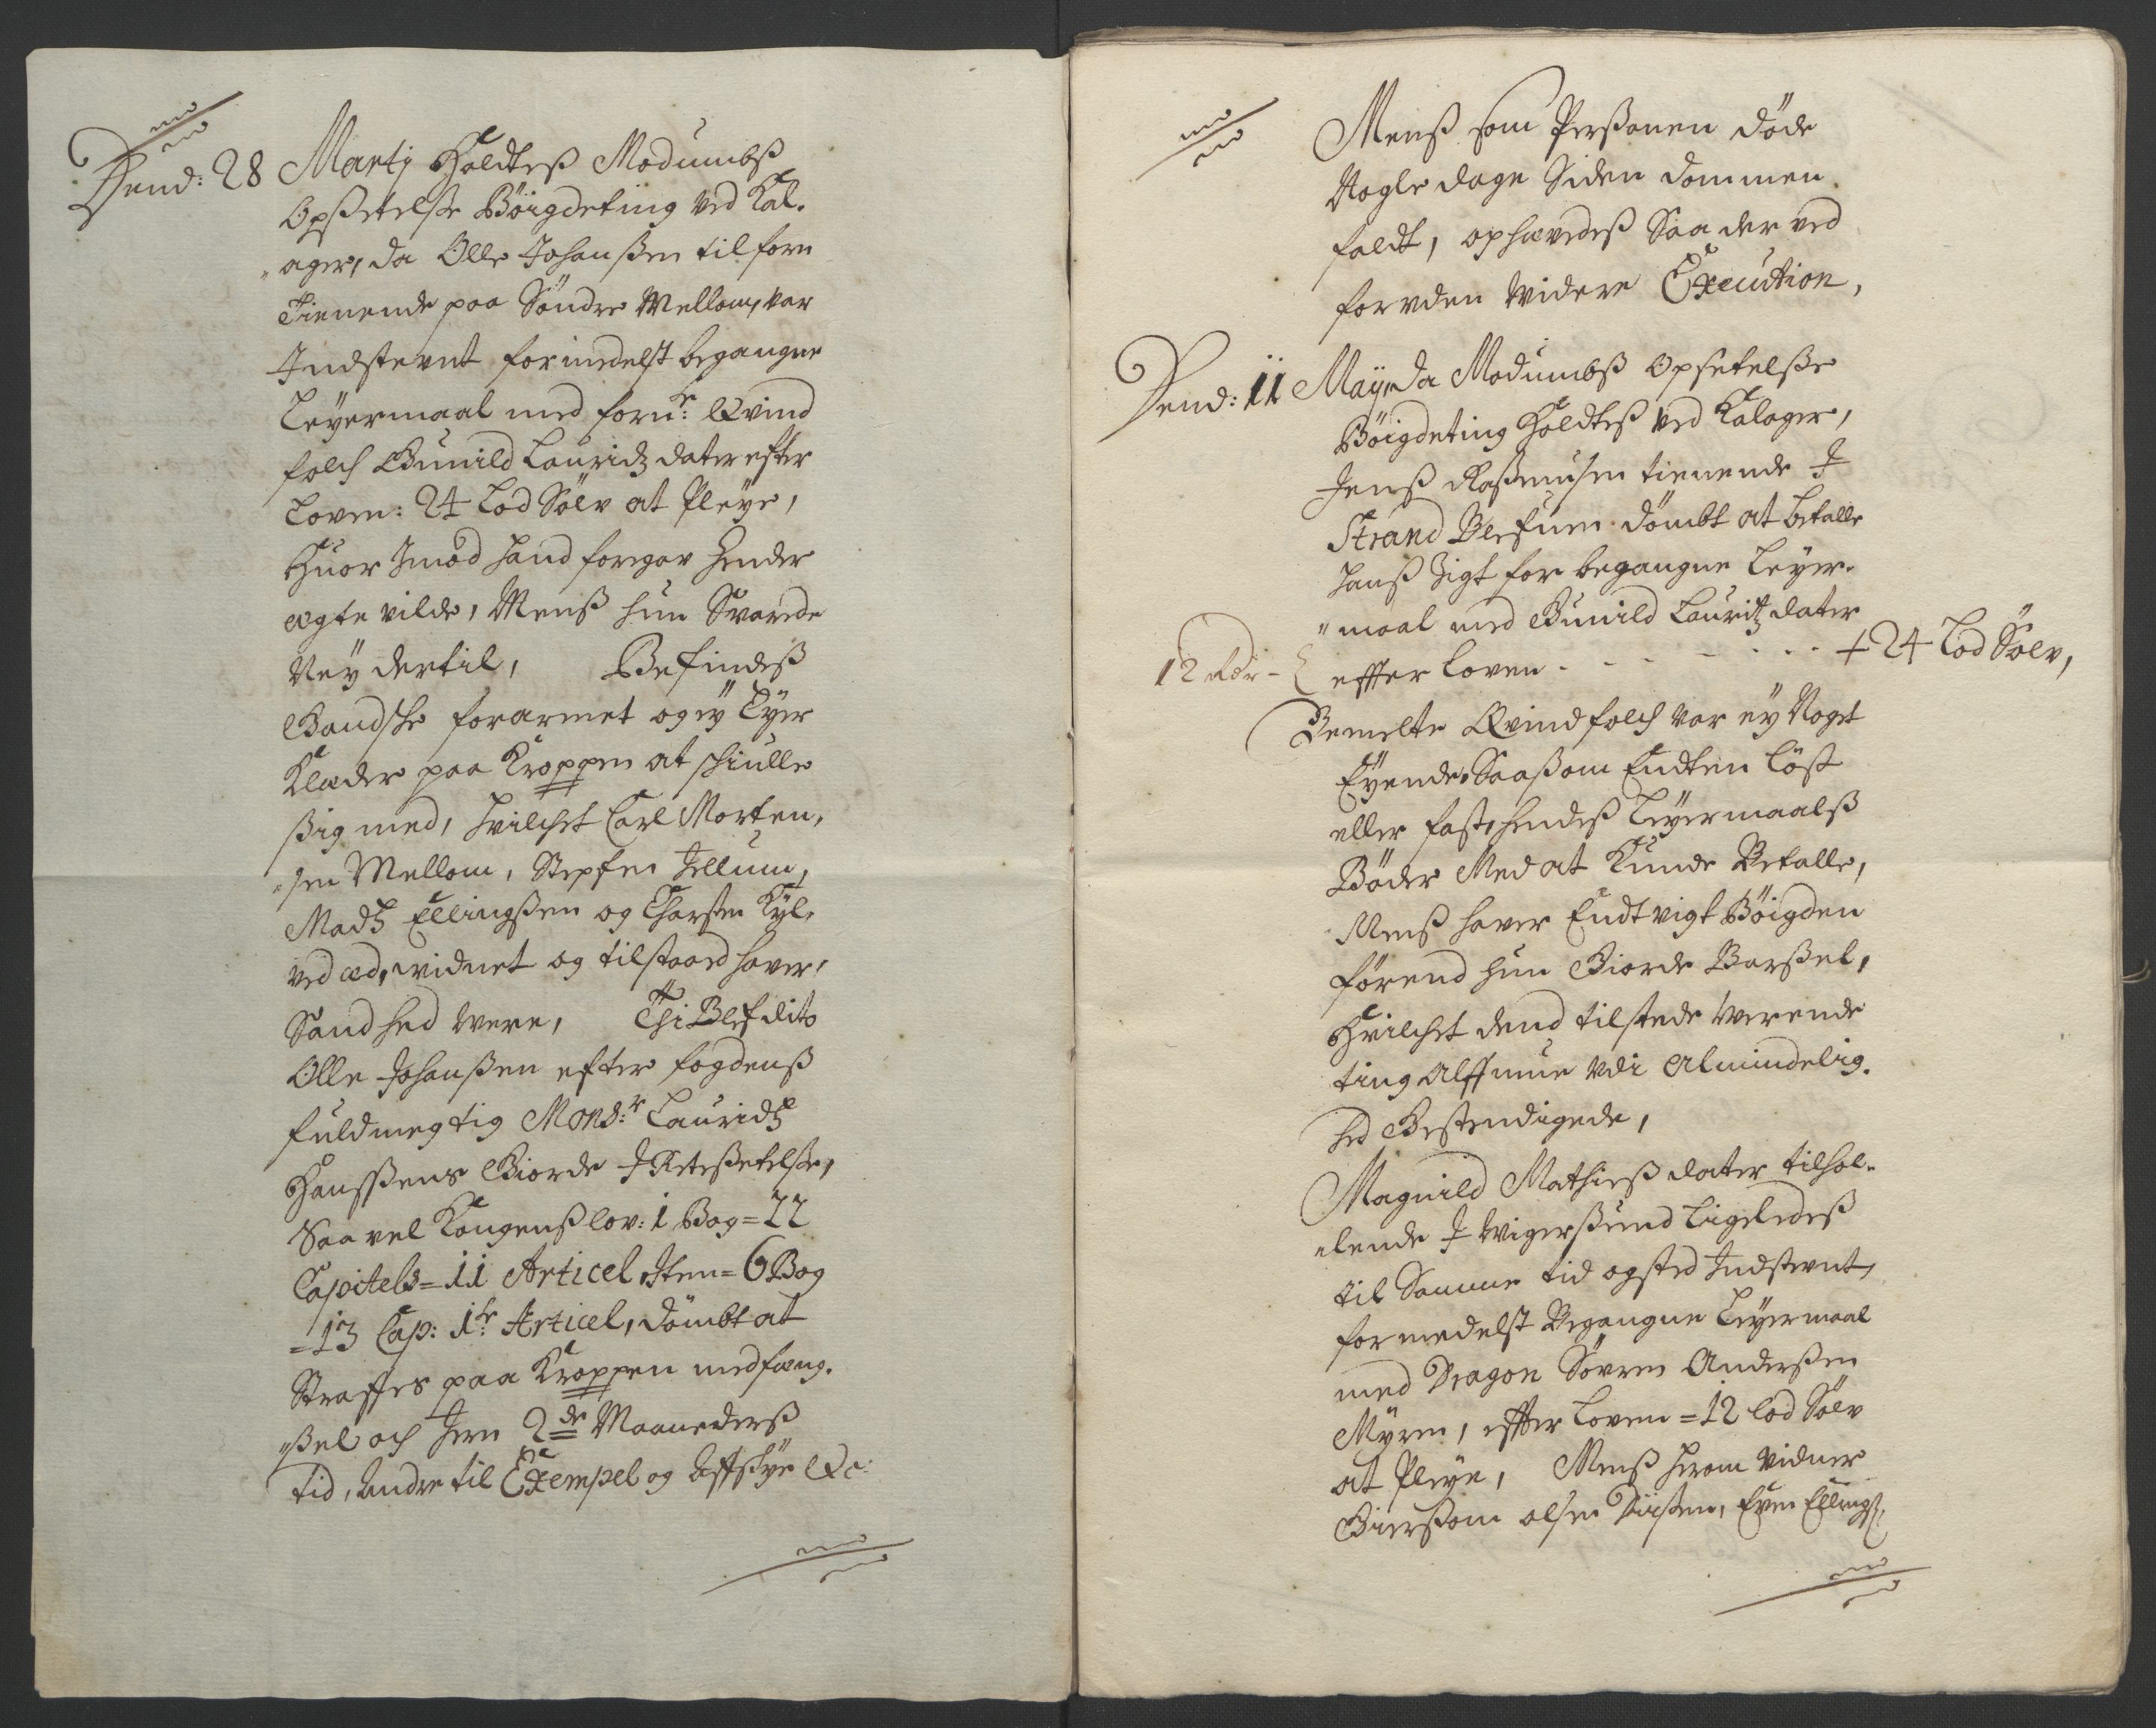 Dend: 28 Martj Holdteß Modumbß
Opßetelse Böigdeting ved Kal-
ager, da Olle Johanßen tilforn
Tienende paa Söndre Mellom, var
Indstevnt formedelst begangne
Leyermaal med fornr: Qvind
folch Gunild Lauridz dater efter
Loven: 24 Lod Sölv at Pleye,
Huor Imod hand foregav hender
ægte vilde, Menß hun Svarede
Ney dertil, Befindeß
Gandske forarmet og ey Eyer
Klæder paa Kroppen at schiulle
ßig med, hvilchet Carl Morten-
sen Mellom, Stephen Jellum,
Madz Ellingßen og Thorsten Kyl-
ved æd, vidnet og tilstaaed haver,
Sandhed Være, Thi Blef dito
Olle Johanßen efter fogdenß
fuldmegtig Monsr: Lauridz
Hanßens Giorde I Retteßetelse,
Saa vel Kongenß lov: 1 Bog = 22
Capitels = 11 Articel, Item = 6 Bog
= 13 Cap: 1te: Articel, dömbt at
Straffes paa Kroppen med fæng-
ßel och Jern 2de Maanederß
tid, Andre til Exempel og Affskye &c:
Menß som Perßonen döde
Nogle dage Siden dommen
faldt, ophævedeß Saa der ved
foruden Videre Execution,
Dend: 11 Maÿ, da Modumbß Opsetelße
Böigdeting Holdteß ved Kalager,
Jenß Raßmusen tienende I
Strand Blef nem. dömbt at betalle
hanß Sigt for begangne Leyer-
maal med Gunild Lauritz dater
12 Rdr - effter Loven - - - - - + 24 Lod Sölv,
Bemelte Qvindfolch var ey Noget
Eyende, Saaßom Endten Löst
eller fast, hendeß Leyermaalß
Böder Med at Kunde Betalle,
Menß haver Endtvigt Böigden
förend hun Giorde Barßel,
Hvilchet dend tilstede Verende
ting Allmue Vdi Almindelig-
hed Bestendigede,
Magnild Mathieß dater tilhol-
lende I Vigerßund Ligeledeß
til Samme tid ogsted Indstevnt,
formedelst Begangne Leyermaal
med Dragon Sövren Anderßen
Myren, effter Loven = 12 Lod Sölv
at Pleye, Menß herom vidner
Giersom olsen , Even Ellingß: